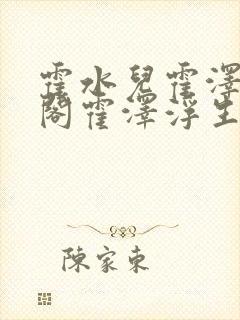 霍水兒霍澤
閣霍澤浮生
陳家東